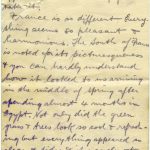 take it.
France is so different. Every
thing seems so pleasant &
harmonious. The South of France
is noted for its picturesqueness
& you can hardly understand
how it looked to us arriving
in the middle of Spring after
spending almost 4 months in
Egypt. Not only did the green
grass & trees look so cool & refresh-
ing but everything appeared so